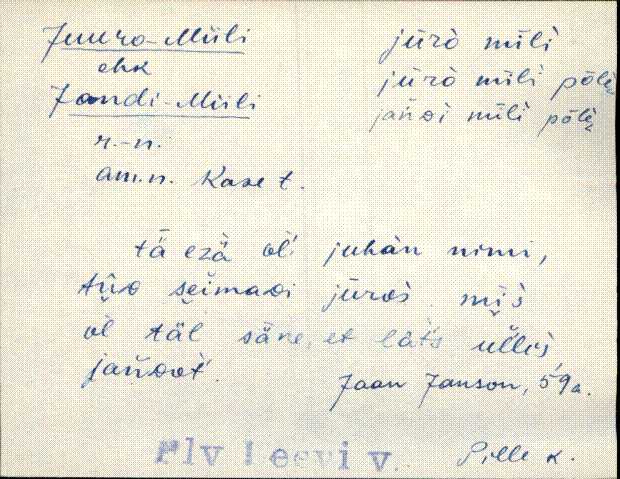 Juuro-Miili
ehk
Jandi-Miili
r.-n.
am.n. Kaset.
jürò mīli
jürò mīli põlè
jañdi mīli põlè
tä ezä oĺ juhàn nimi,
seimaDi jüròs
oĺ täl säne, et läts üĺlès
jañDot.
Jaan Janson, 59a.
Plv Leevi v.
Pille K.